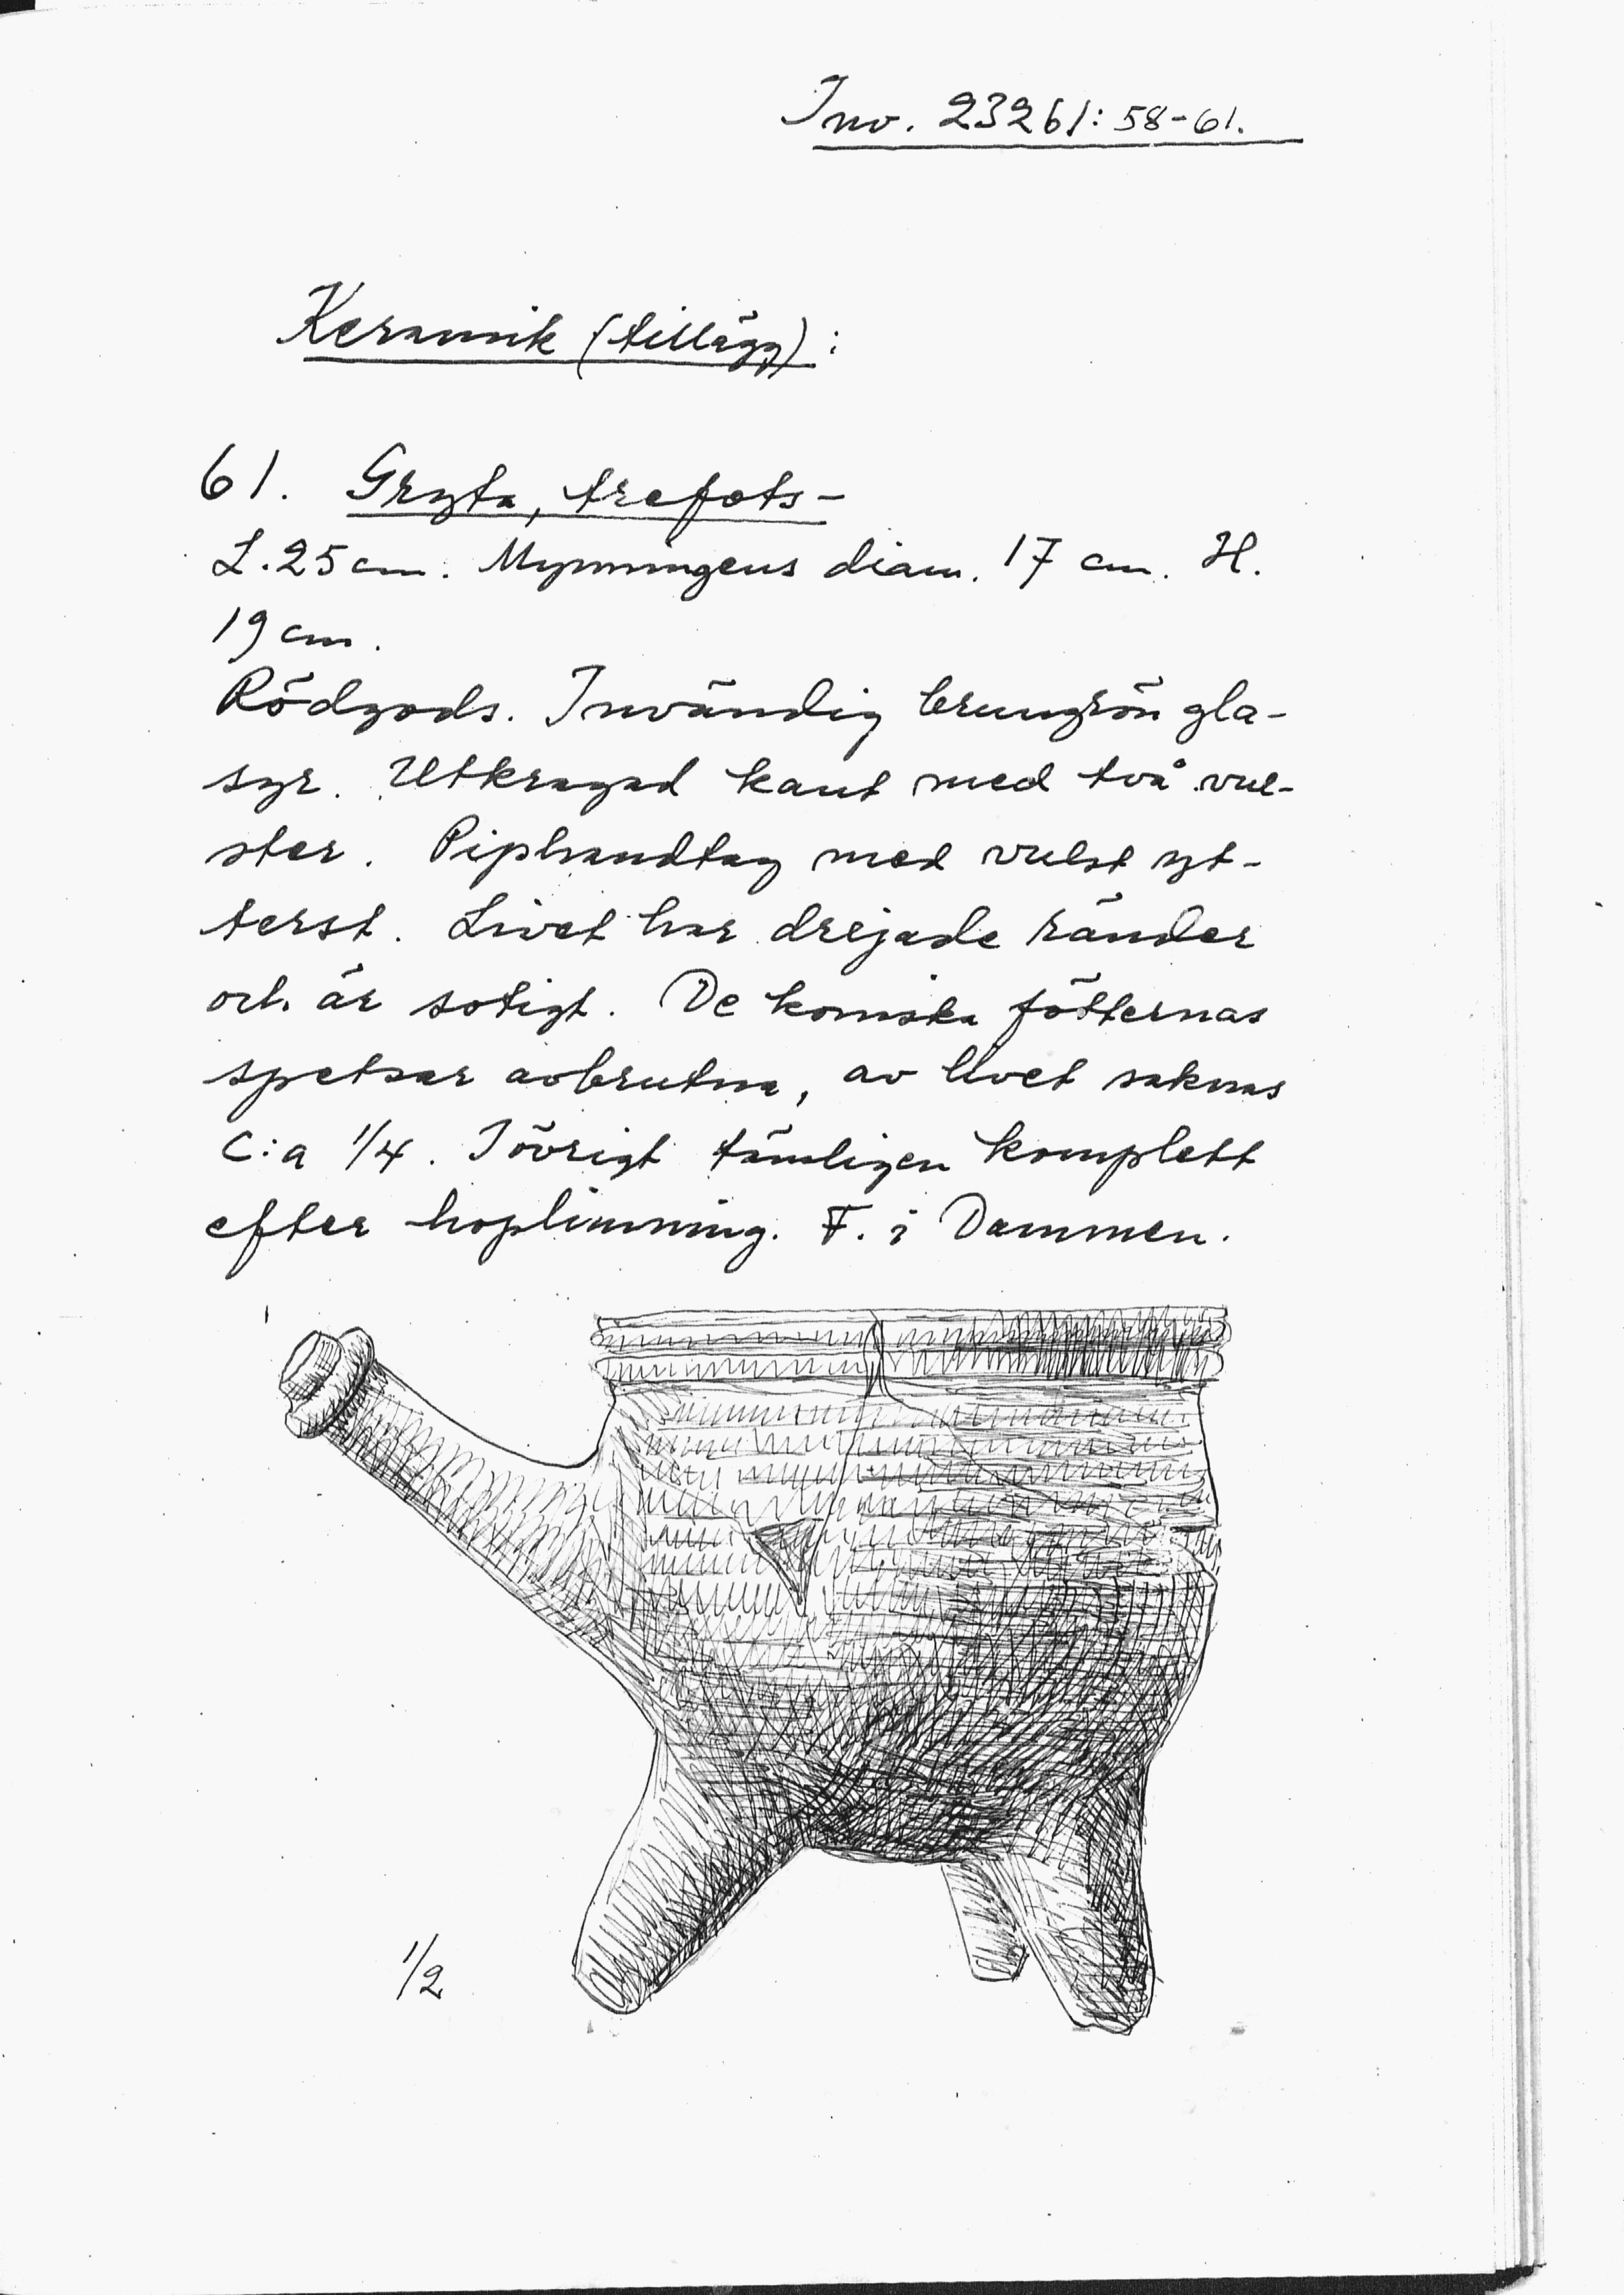 Inv. 23261: 58-61.
Keramik (tillägg):
61. Gryta, trefots-
L. 25 cm. Mynningens diam. 17 cm. H.
19 cm.
Rödgods. Invändig brungrön gla-
syr. Utkragad kant med två vul-
ster. Piphandtag med vulst yt-
terst. Livet har drejade ränder
och är sotigt. De koniska fötternas
spetsar avbrutna, av livet saknas
C:a 1/4. I övrigt tämligen komplett
efter hoplimning. F. i Dammen.
1/2